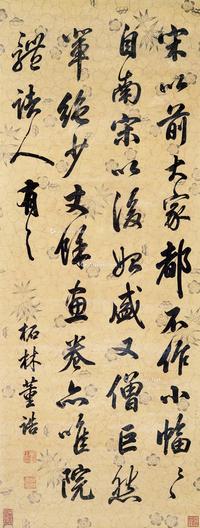 宋以前大家都不作小幅〻
自南宋以後始盛又僧巨然
筆絕少丈餘畫卷亦唯院
體諸人有之
柘林董誥